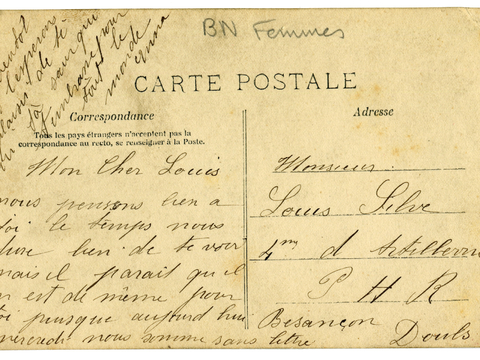 BN Femmes
CARTE POSTALE
Correspondance
Tous les pays étrangers n'acceptent pas la
correspondance au recto, se renseigner à la Poste.
Mon Cher Louis
nous pensons bien a
toi le temps nous
dure bien de te voir
mais il parait qu il
en est de même pour
toi puisque aujourd hui
mercredi nous somme sans lettre
bientôt
l'esperons
plaisir de te
sauf qui
tout le
monde
Anna
Adresse
Monsieur
Louis Silve
4me d Artillerie
P H R
Besançon
Doubs